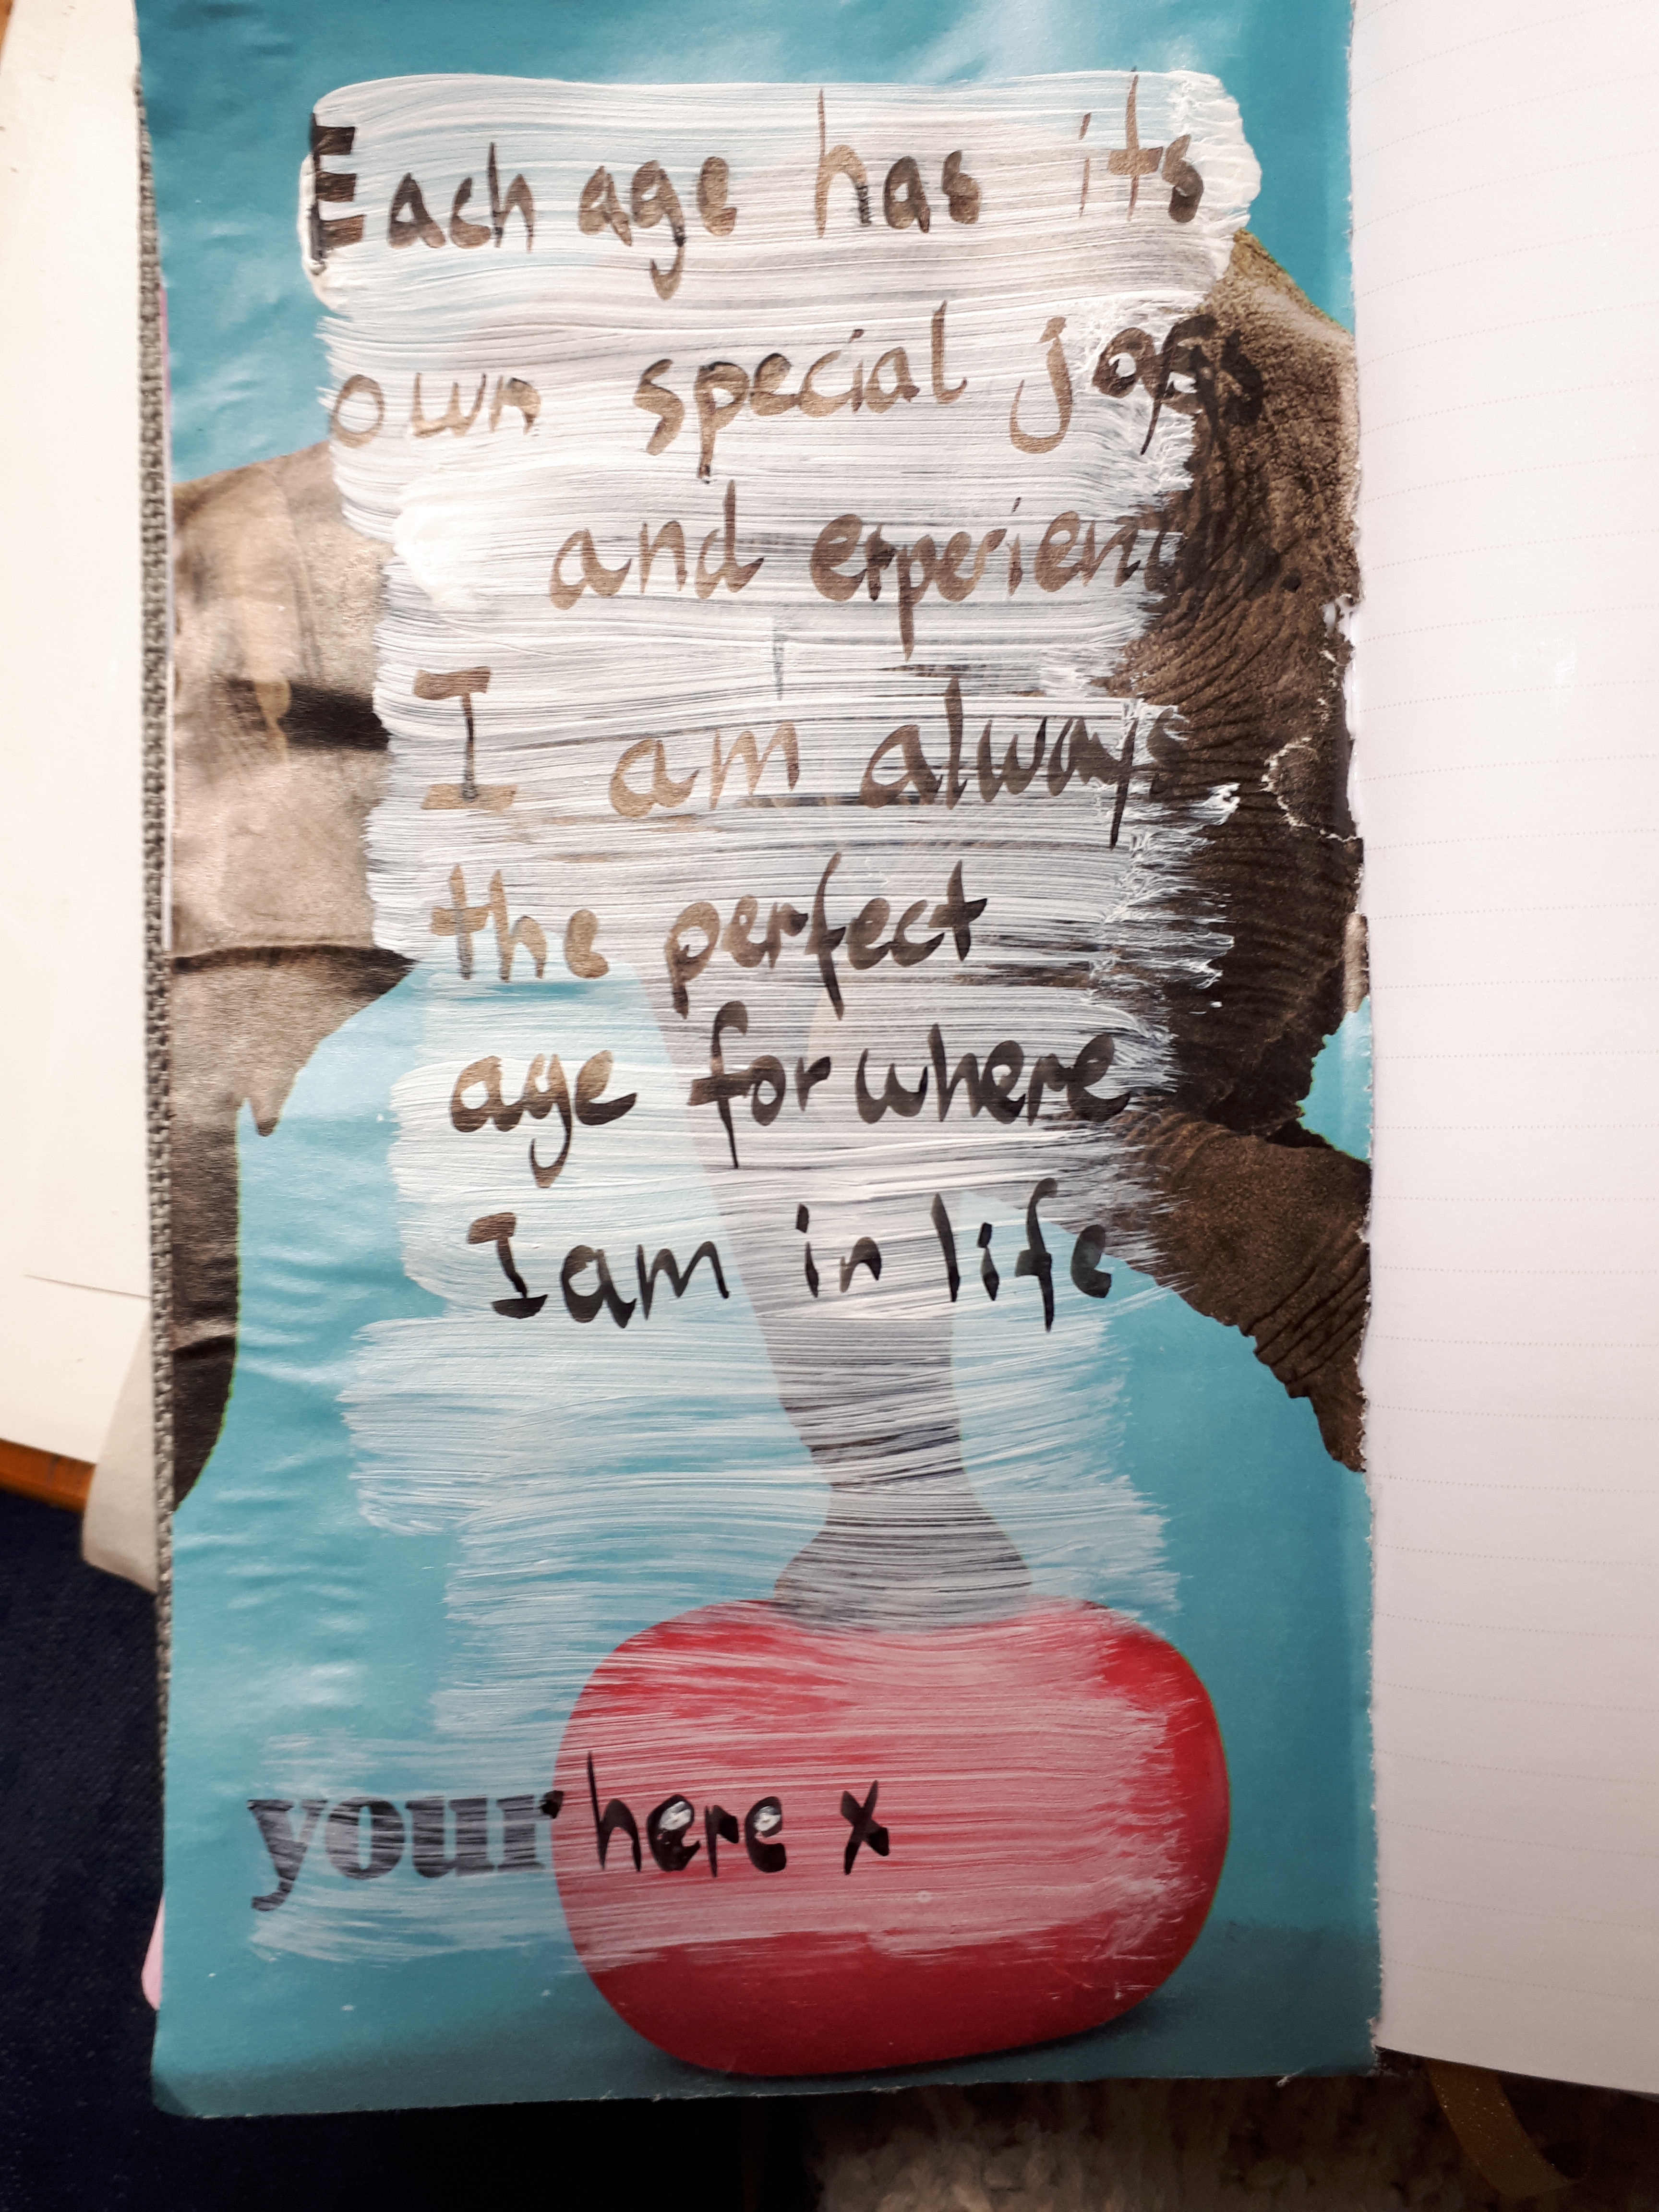 Each age has its
own special joys
and experien
I am always
the perfect
age for where
I am in life
your here x